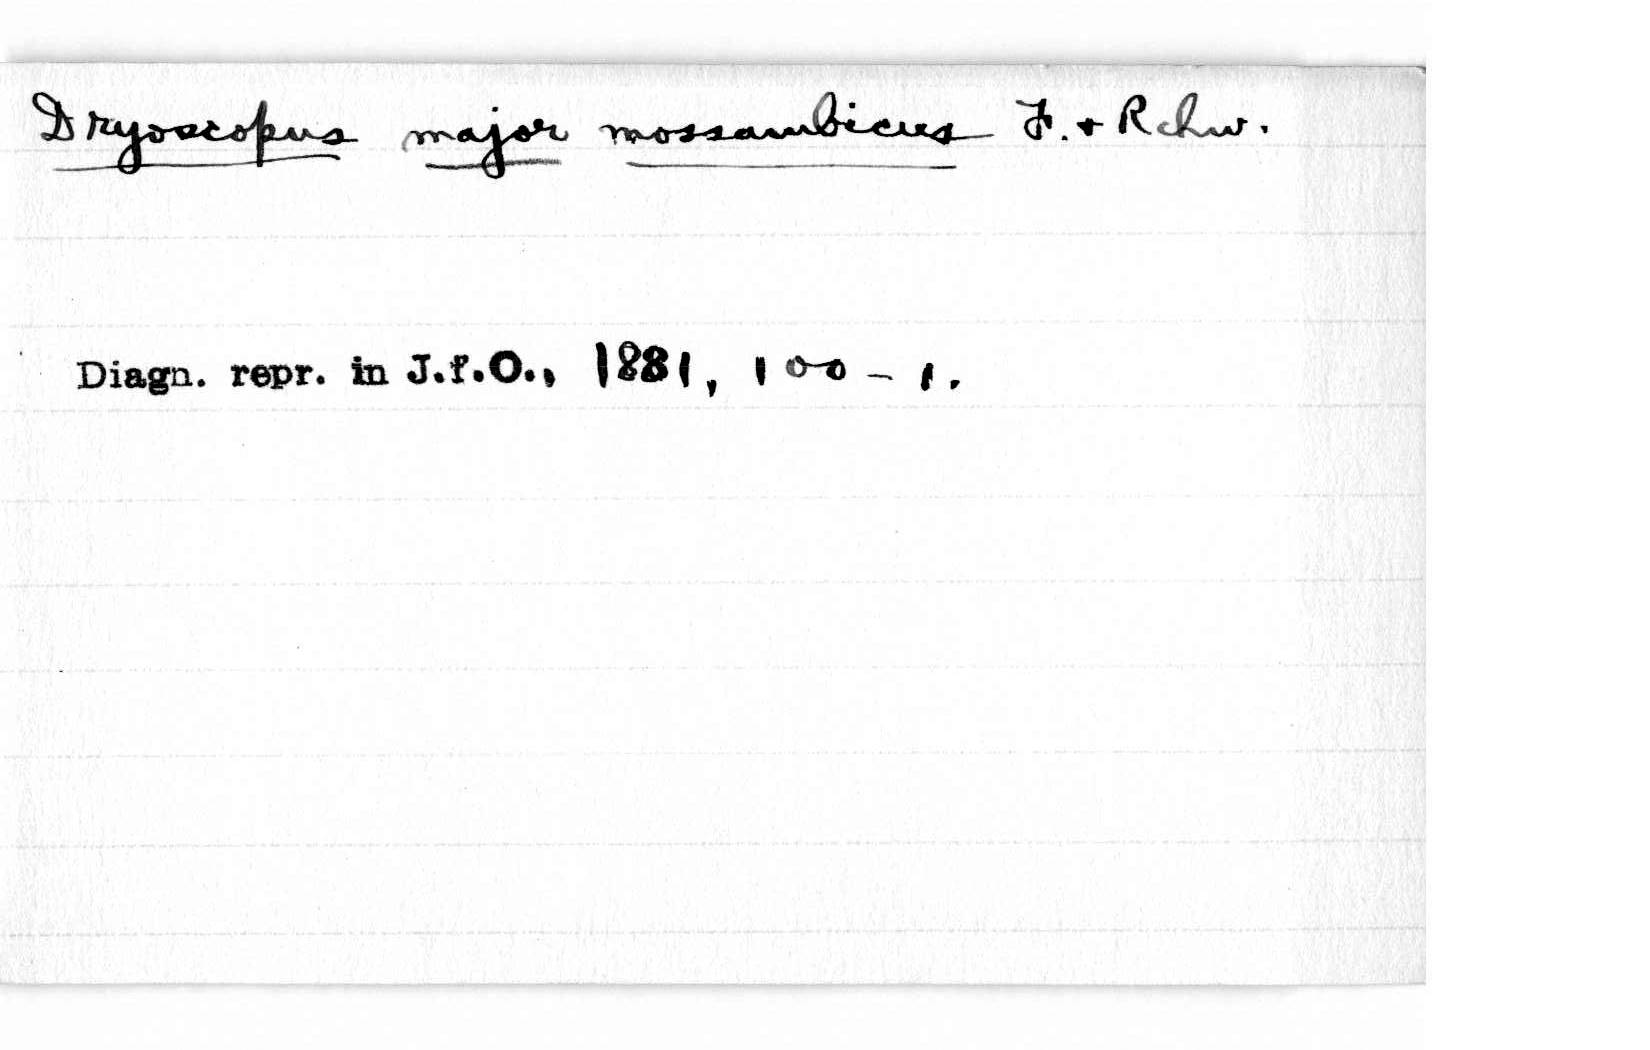 Dryoscopus major mossambicus F. + Rchw.
Diagn. repr. in J.f.O., 1881, 100-1.